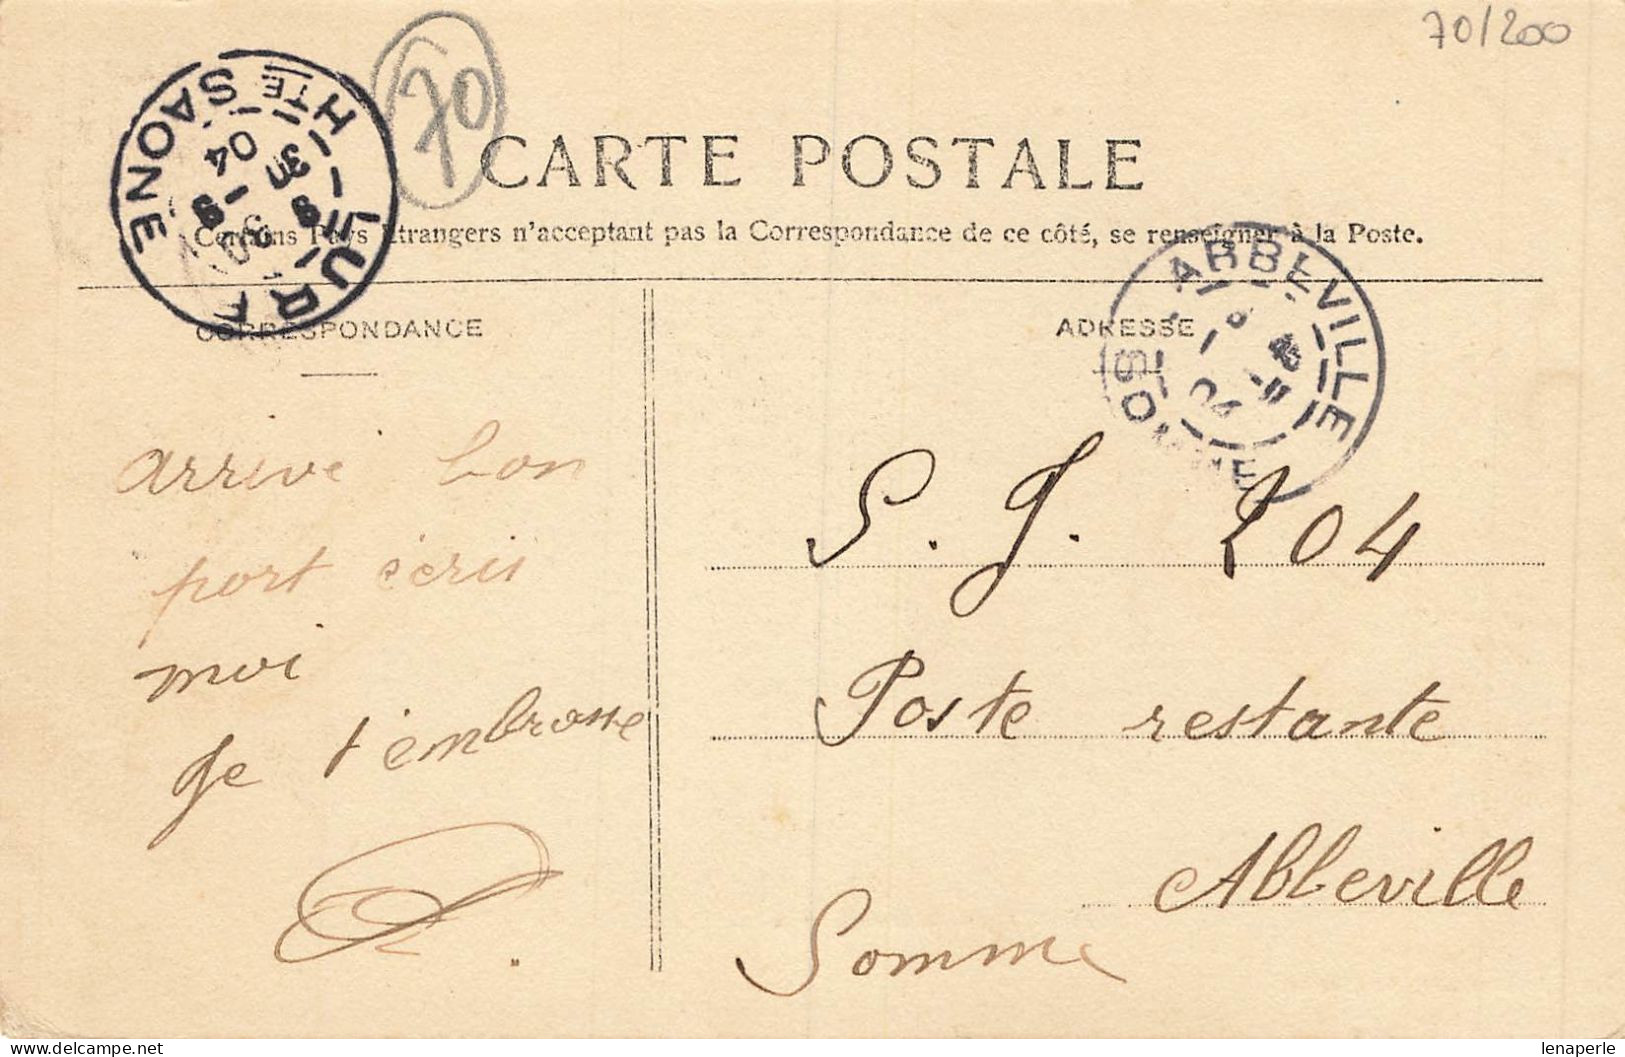 70/200
70
CARTE POSTALE
Certains Pays Etrangers n'acceptant pas la Correspondance de ce côté, se renseigner à la Poste.
LURE
HTE SAONE
3E
9 -9
04
ABBEVILLE
SOMME
04
CORRESPONDANCE
ADRESSE
arrivé bon
port écris
moi
Je t'embrasse
S. J. 204
Poste restante
Abbeville
Somme
lenaperle